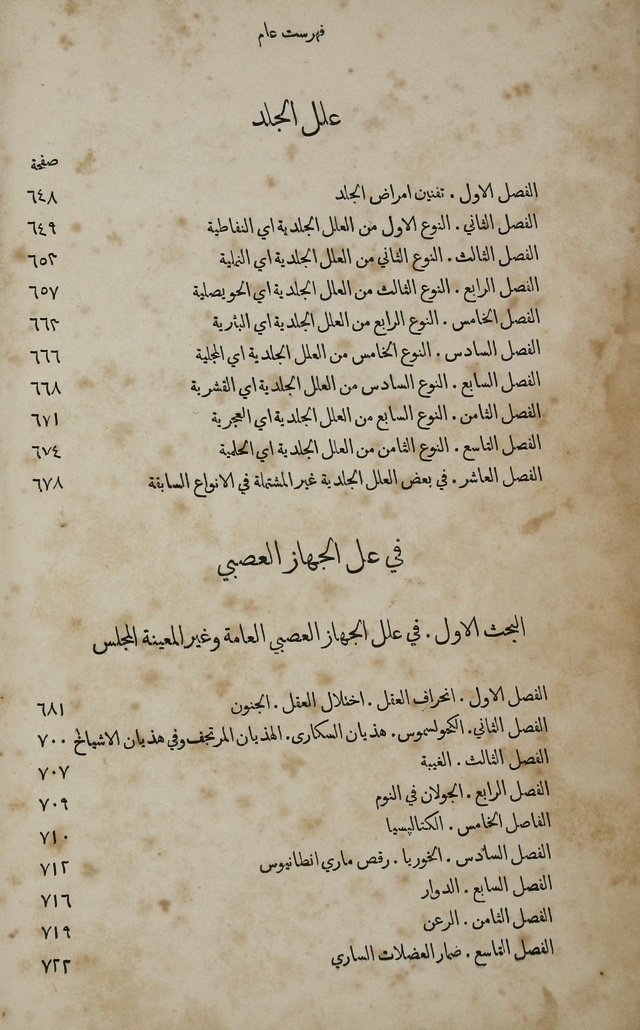 فهرست عام
علل الجلد
صفحة
الفصل الاول . تفنين امراض الجلد ٦٤٨
الفصل الثاني . النوع الاول من العلل الجلدية اي النفاطية ٦٤٩
الفصل الثالث . النوع الثاني من العلل الجلدية اي النملية ٦٥٢
الفصل الرابع . النوع الثالث من العلل الجلدية اي الحويصلية ٦٥٧
الفصل الخامس . النوع الرابع من العلل الجلدية اي البثرية ٦٦٢
الفصل السادس . النوع الخامس من العلل الجلدية اي المجلية ٦٦٦
الفصل السابع . النوع السادس من العلل الجلدية اي القشرية ٦٦٨
الفصل الثامن . النوع السابع من العلل الجلدية اي العجرية ٦٧١
الفصل التاسع . النوع الثامن من العلل الجلدية اي الحلمية ٦٧٤
الفصل العاشر . في بعض العلل الجلدية غير المشتملة في الانواع السابقة ٦٧٨
في علل الجهاز العصبي
البحث الاول . في علل الجهاز العصبي العامة وغير المعينة المجلس
الفصل الاول . انحراف العقل . اختلال العقل . الجنون ٦٨١
الفصل الثاني . الكحولسموس . هذيان السكارى . الهذيان المرتجف وفي هذيان الاشياخ ٧٠٠
الفصل الثالث . الغيبة ٧٠٧
الفصل الرابع . الجولان في النوم ٧٠٩
الفاصل الخامس . الكتاليسيا ٧١٠
الفصل السادس . الخوريا . رقص ماري انطانيوس ٧١٢
الفصل السابع . الدوار ٧١٦
الفصل الثامن . الرعن ٧١٩
الفصل التاسع . ضمار العضلات الساري ٧٢٢